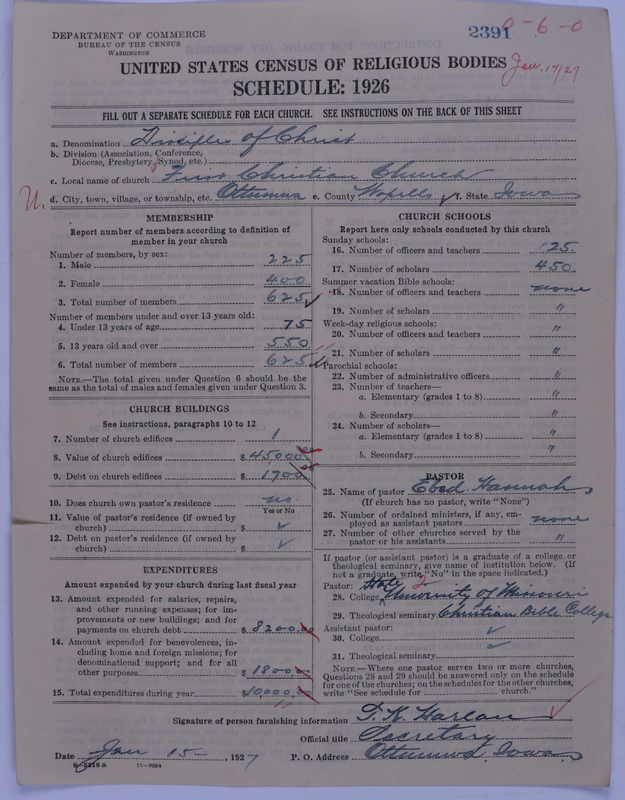 DEPARTMENT OF COMMERCE
BUREAU OF THE CENSUS
WASHINGTON
2391 P-6-0
UNITED STATES CENSUS OF RELIGIOUS BODIES
Jan. 17/27
SCHEDULE: 1926
FILL OUT A SEPARATE SCHEDULE FOR EACH CHURCH. SEE INSTRUCTIONS ON THE BACK OF THIS SHEET
a. Denomination Disciples of Christ
b. Division (Association, Conference,
Diocese, Presbytery, Synod, etc.)
c. Local name of church First Christian Church
U. d. City, town, village, or township, etc. Ottumwa e. County Wapello f. State Iowa
MEMBERSHIP
Report number of members according to definition of
member in your church
Number of members, by sex:
1. Male 225
2. Female 400
3. Total number of members 625
Number of members under and over 13 years old:
4. Under 13 years of age 75
5. 13 years old and over 550
6. Total number of members 625
NOTE.—The total given under Question 6 should be
the same as the total of males and females given under Question 3.
CHURCH BUILDINGS
See instructions, paragraphs 10 to 12
7. Number of church edifices 1
8. Value of church edifices $45000
9. Debt on church edifices $1700
10. Does church own pastor's residence no
Yes or No
11. Value of pastor's residence (if owned by
church) $ ✓
12. Debt on pastor's residence (if owned by
church) $ ✓
EXPENDITURES
Amount expended by your church during last fiscal year
13. Amount expended for salaries, repairs,
and other running expenses; for im-
provements or new buildings; and for
payments on church debt $8200.00
14. Amount expended for benevolences, in-
cluding home and foreign missions; for
denominational support; and for all
other purposes $1800
15. Total expenditures during year $10,000.00
CHURCH SCHOOLS
Report here only schools conducted by this church
Sunday schools:
16. Number of officers and teachers 25
17. Number of scholars 450
Summer vacation Bible schools:
18. Number of officers and teachers none
19. Number of scholars "
Week-day religious schools:
20. Number of officers and teachers "
21. Number of scholars "
Parochial schools:
22. Number of administrative officers "
23. Number of teachers—
a. Elementary (grades 1 to 8) "
b. Secondary "
24. Number of scholars—
a. Elementary (grades 1 to 8) "
b. Secondary "
PASTOR
25. Name of pastor Ebed Hannah
(If church has no pastor, write "None")
26. Number of ordained ministers, if any, em-
ployed as assistant pastors none
27. Number of other churches served by the
pastor or his assistants "
If pastor (or assistant pastor) is a graduate of a college or
theological seminary, give name of institution below. (If
not a graduate, write "No" in the space indicated.)
Pastor: State 2
28. College University of Missouri
29. Theological seminary Christian Bible College
Assistant pastor:
30. College ✓
31. Theological seminary ✓
NOTE.—Where one pastor serves two or more churches,
Questions 28 and 29 should be answered only on the schedule
for one of the churches; on the schedules for the other churches,
write "See schedule for church."
Signature of person furnishing information T. K. Harlan
Official title Secretary
Date Jan 15 , 1927 P. O. Address Ottumwa, Iowa
11—9064